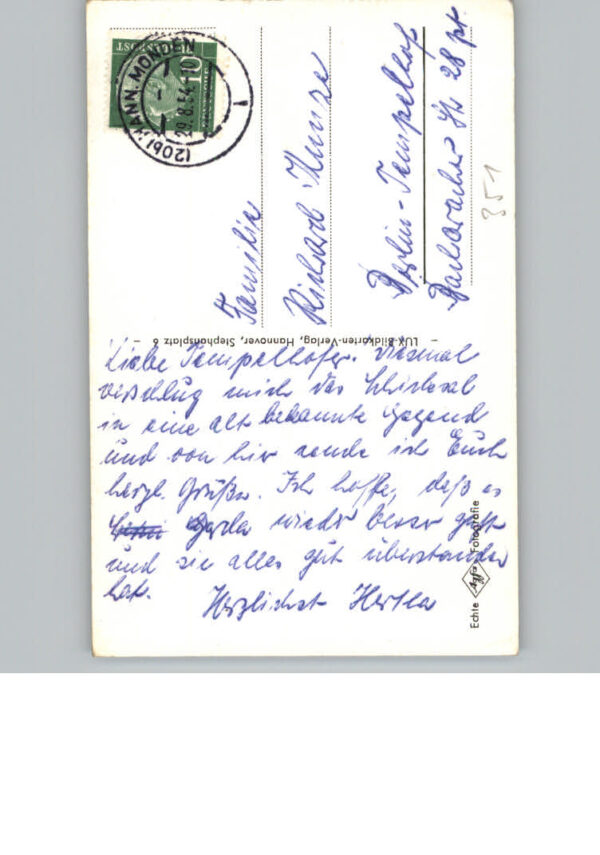 (20b) HANN. MÜNDEN
29.8.54.-10
10
DEUTSCHE BUNDESPOST
Familie
Richard Kunze
Berlin-Tempelhof
Bacharacher Str 28 pt.
351
LUX-Bildkarten-Verlag, Hannover, Stephansplatz 6
Liebe Tempelhofer. Diesmal
verschlug mich das Schicksal
in eine alt bekannte Gegend
und von hier sende ich Euch
herzl. Grüße. Ich hoffe, daß es
Gerda wieder besser geht
und sie alles gut überstanden
hat.
Herzlichst Hertha
Echte Agfa Fotografie